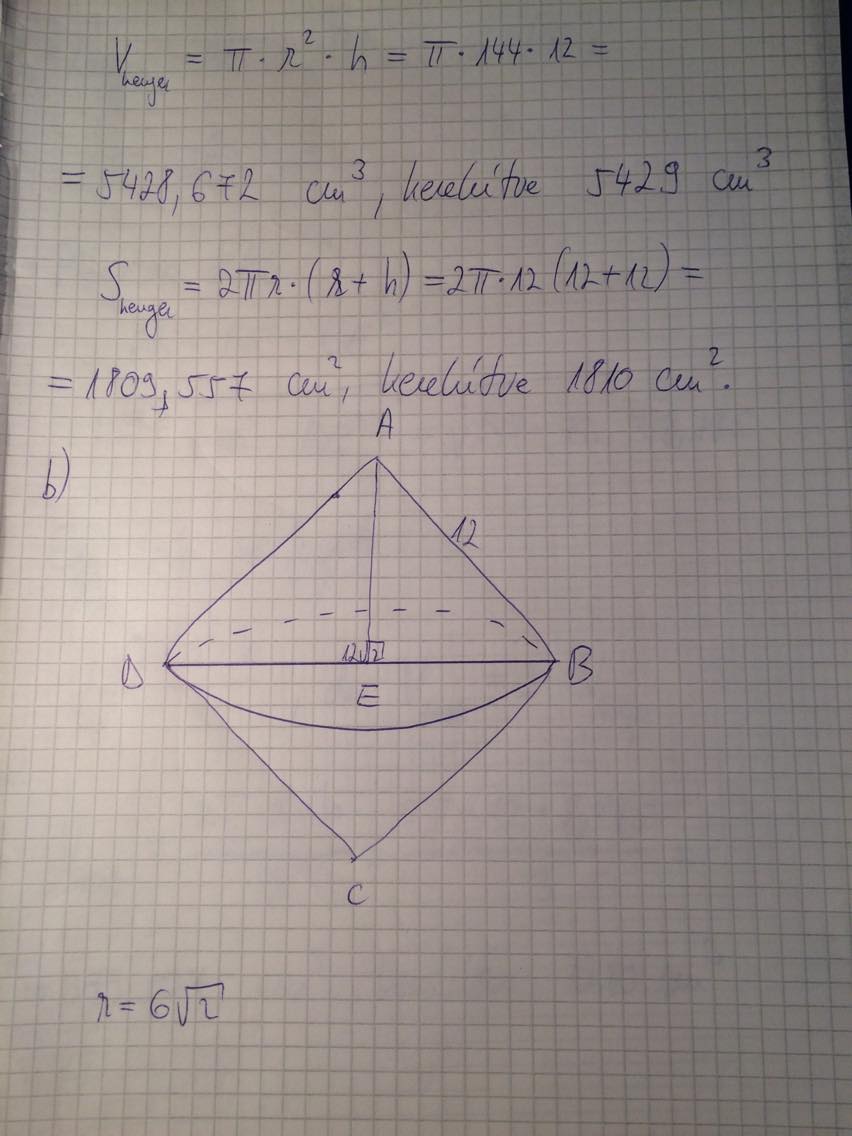 V henger = π · r² · h = π · 144 · 12 =
= 5428,672 cm³, kerekítve 5429 cm³
S henger = 2πr · (r + h) = 2π · 12 (12 + 12) =
= 1809,557 cm², kerekítve 1810 cm².
A
b)
12
12√2
D B
E
C
r = 6√2